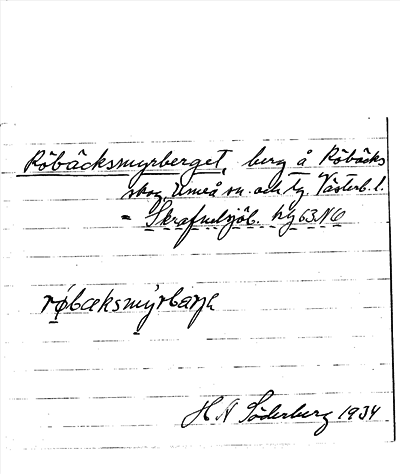 Röbäcksmyrberget, berg å Röbäcks
skog, Umeå sn. och tg. Västerb. l.
= Skrafvelsjöb. hg 63 NO
røbæksmýrbærje
H A Söderberg 1934